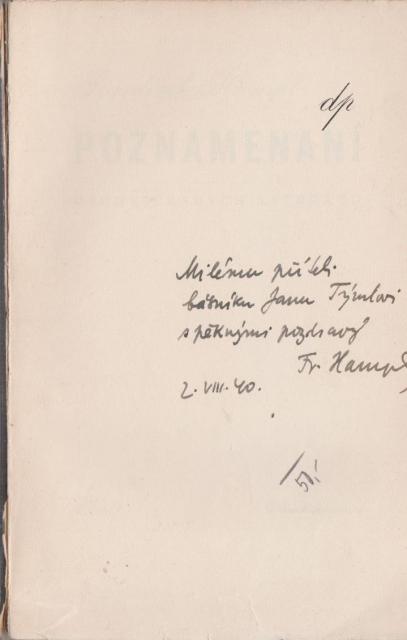 dp
POZNAMENANÍ
Milému příteli
básníku Janu Týmlovi
s pěknými pozdravy
Fr. Hampl
2. VIII. 40.
50,-